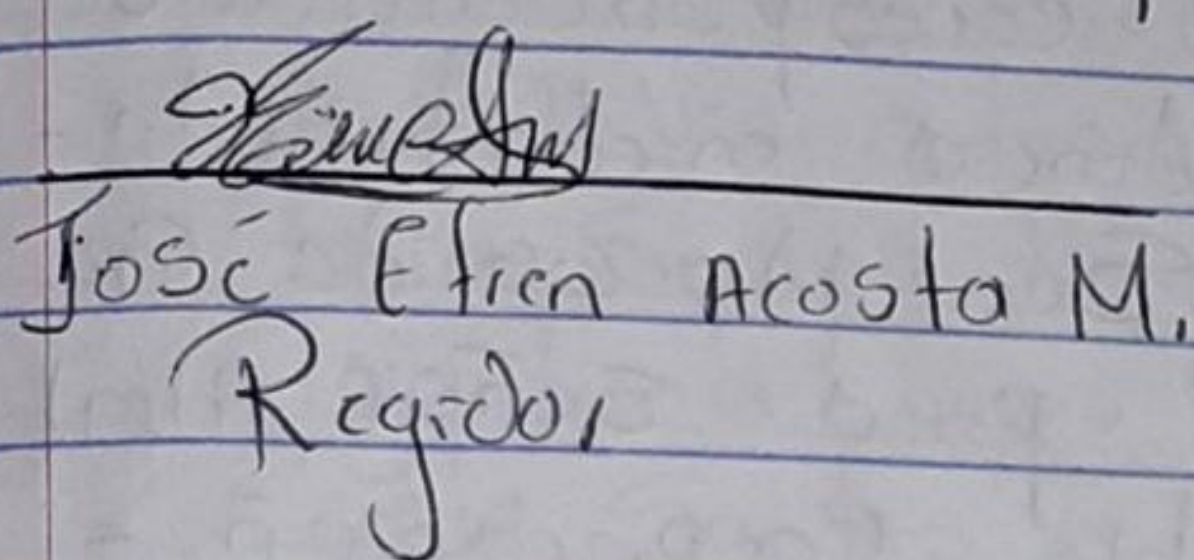 José Efren Acosta M.
Regidor